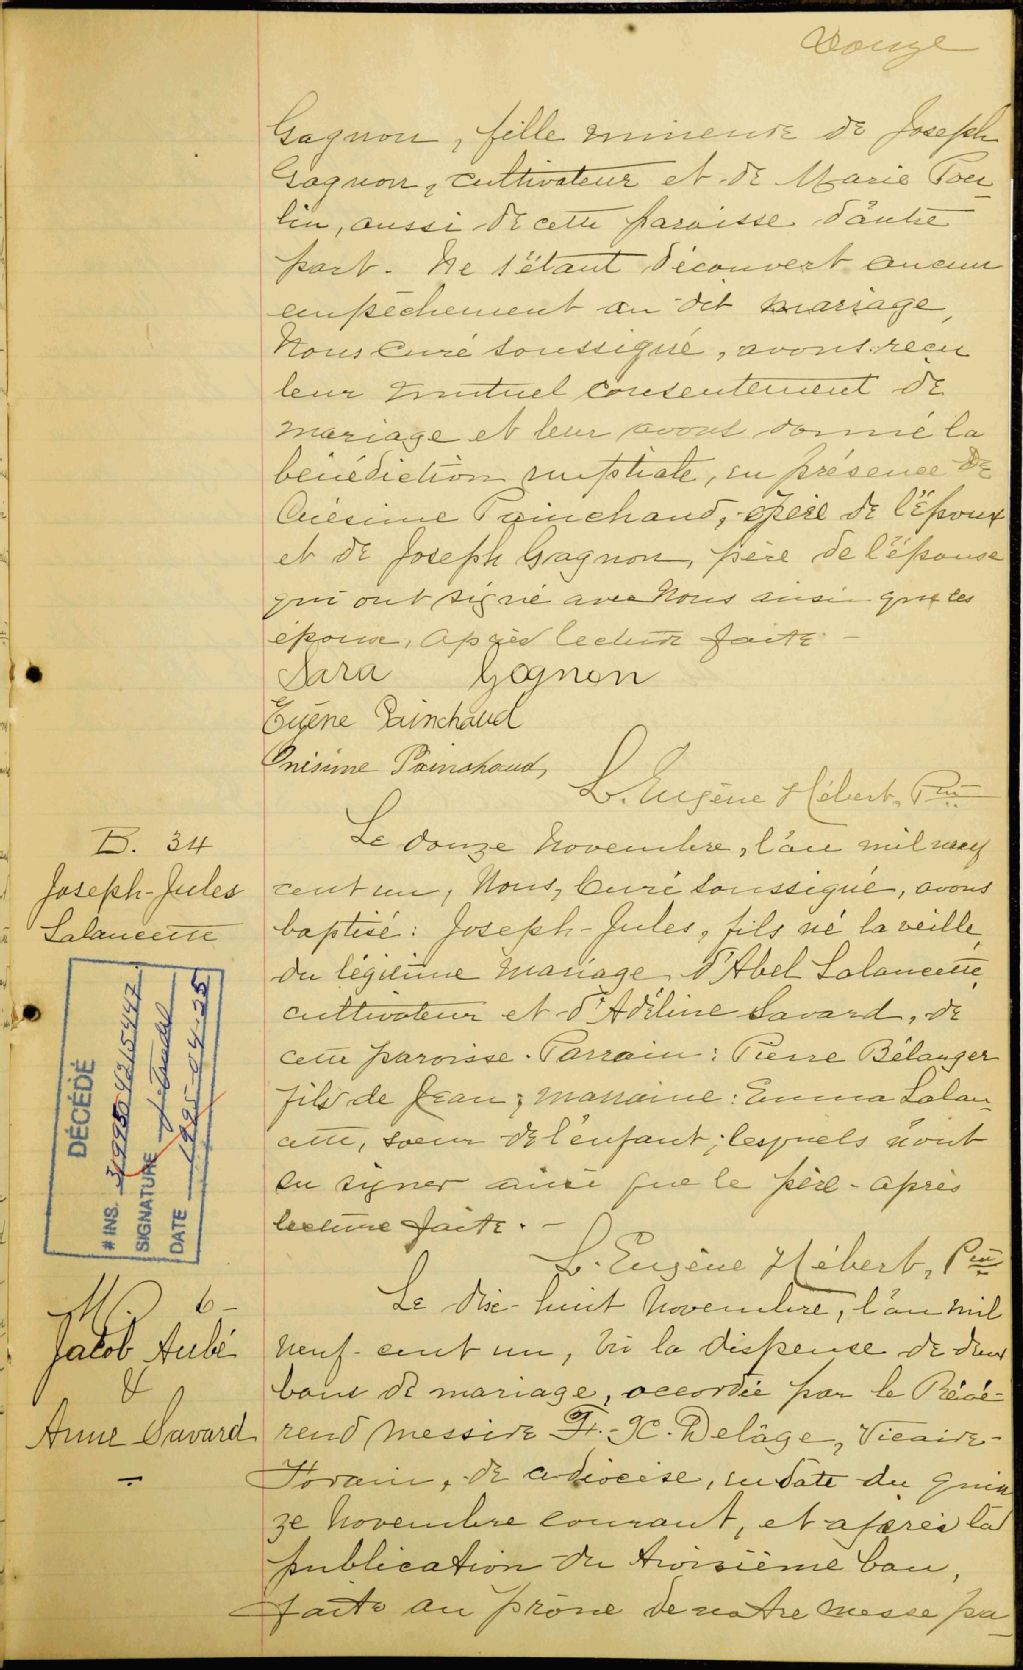 Douze
Gagnon, fille mineure de Joseph
Gagnon, cultivateur et de Marie Pou-
lin, aussi de cette paroisse d'autre
part. Ne s'étant découvert aucun
empêchement au dit mariage,
Nous Curé soussigné, avons reçu
leur mutuel consentement de
mariage et leur avons donné la
bénédiction nuptiale, en présence de
Onésime Painchaud, père de l'époux
et de Joseph Gagnon, père de l'épouse
qui ont signé avec Nous ainsi que les
époux, après lecture faite. -
Sara Gagnon
Eugène Painchaud
Onésime Painchaud,
L. Eugène Hébert, Ptre
B. 34
Joseph-Jules
Lalancette
Le douze Novembre, l'an mil neuf
cent un, Nous, Curé soussigné, avons
baptisé: Joseph-Jules, fils né la veille
du légitime mariage d'Abel Lalancette,
cultivateur et d'Adéline Savard, de
cette paroisse. Parrain: Pierre Bélanger
fils de Jean; marraine: Emma Lalan-
cette, soeur de l'enfant; lesquels n'ont
su signer ainsi que le père - après
lecture faite. -
L. Eugène Hébert, Ptre
DÉCÉDÉ
# INS. 3199504215447
SIGNATURE
DATE 1995-04-25
M. 6-
Jacob Aubé
&
Anne Savard
-
Le dix-huit Novembre, l'an mil
neuf-cent un, Vu la dispense de deux
bans de mariage, accordée par le Révé-
rend Messire F.-X. Delâge, Vicaire-
Forain, de ce diocèse, en date du quin
ze Novembre courant, et après la
publication du troisième ban,
faite au prône de notre messe pa-